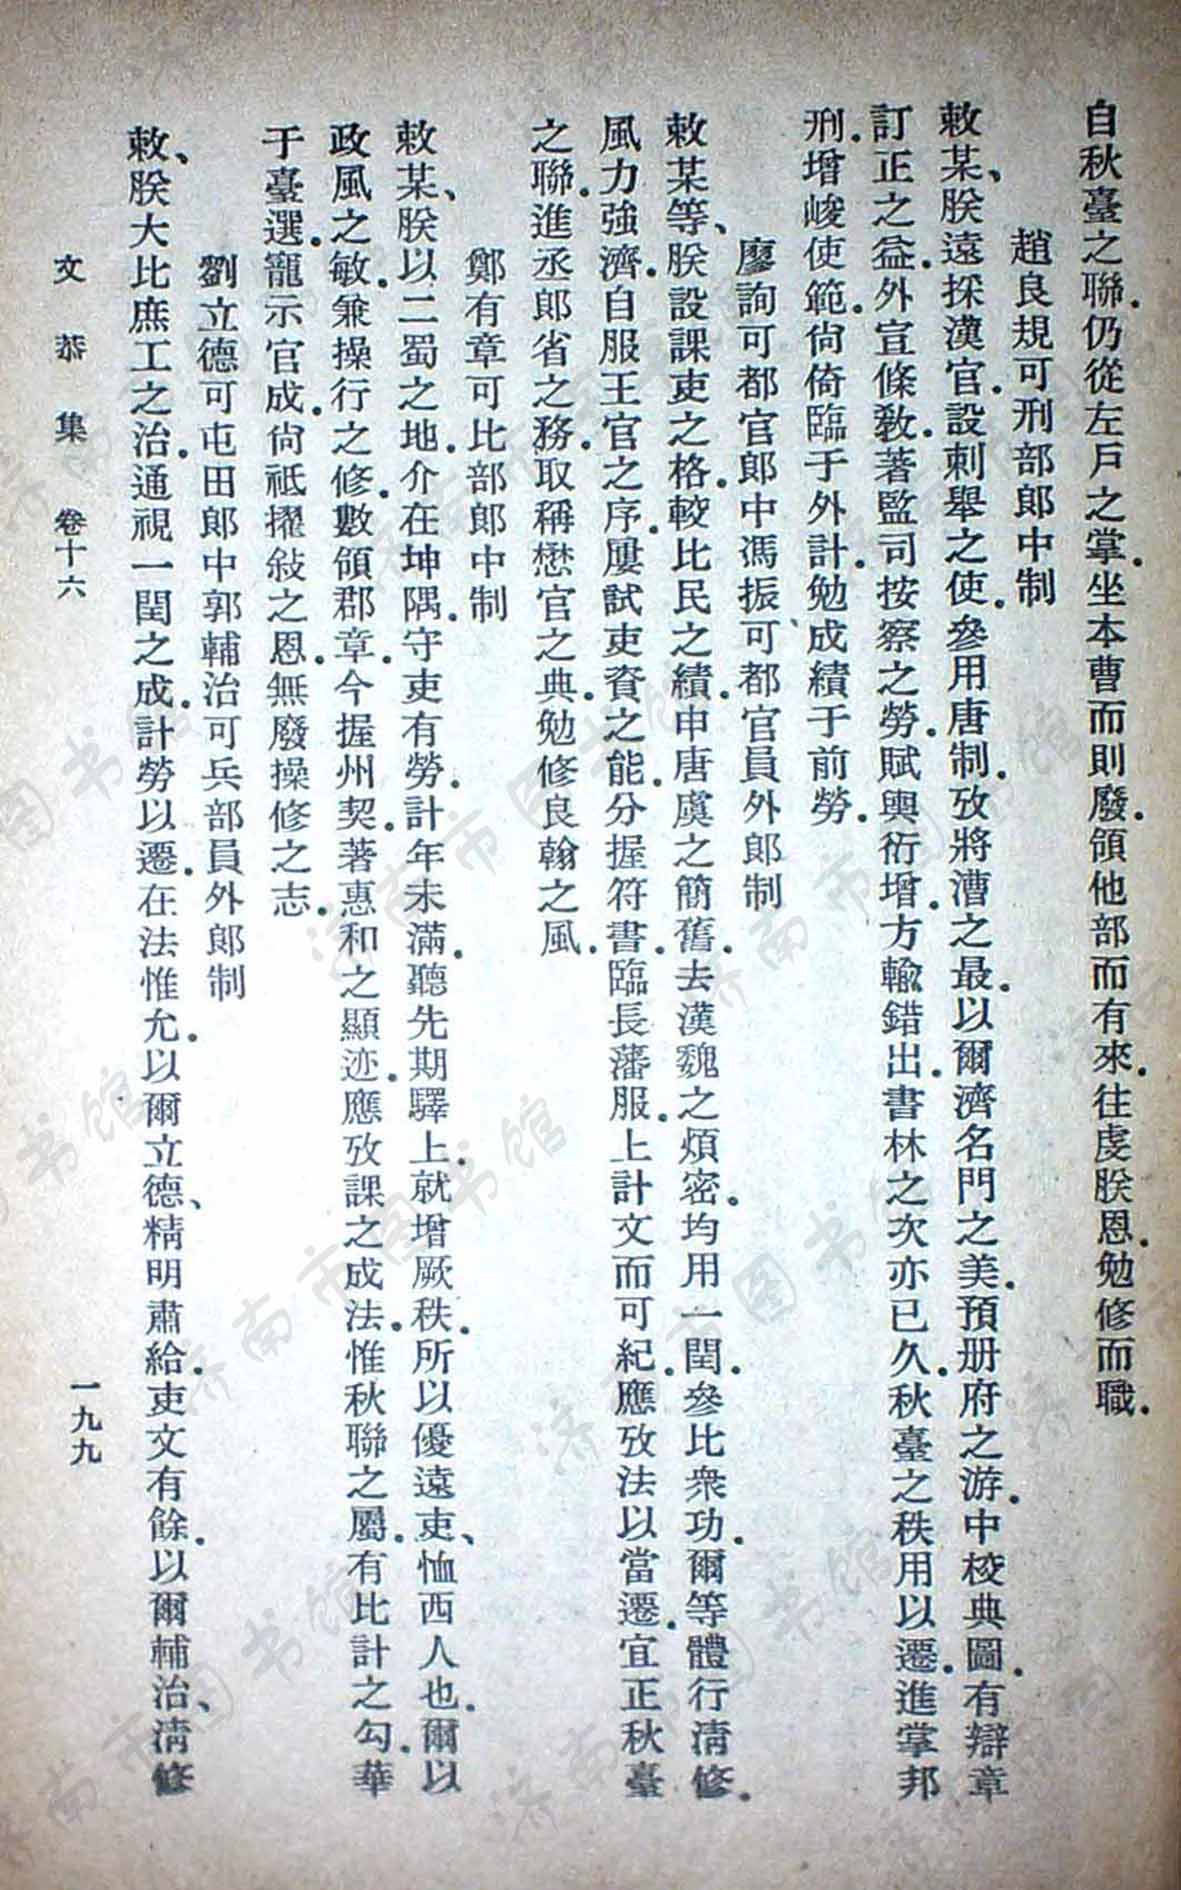 自秋臺之聯.仍從左戶之掌.坐本曹而則廢.領他部而有來.往虔朕恩.勉修而職.
趙良規可刑部郎中制
敕某、朕遠採漢官.設刺舉之使.參用唐制.攷將漕之最.以爾濟名門之美.預册府之游.中校典圖.有辯章
訂正之益.外宣條敎.著監司按察之勞.賦輿衍增.方輸錯出.書林之次亦已久.秋臺之秩用以遷.進掌邦
刑.增峻使範.尙倚臨于外計.勉成績于前勞.
廖詢可都官郎中馮振可都官員外郎制
敕某等、朕設課吏之格.較比民之績.申唐虞之簡舊.去漢魏之煩密.均用一閏.參比衆功.爾等體行淸修.
風力強濟.自服王官之序.屢試吏資之能.分握符書.臨長藩服.上計文而可紀.應攷法以當遷.宜正秋臺
之聯.進丞郎省之務.取稱懋官之典.勉修良翰之風.
鄭有章可比部郎中制
敕某、朕以二蜀之地.介在坤隅.守吏有勞.計年未滿.聽先期驛上.就增厥秩.所以優遠吏、恤西人也.爾以
政風之敏.兼操行之修.數領郡章.今握州契.著惠和之顯迹.應攷課之成法.惟秋聯之屬.有比計之勾.華
于臺選.寵示官成.尙祗擢敍之恩.無廢操修之志.
劉立德可屯田郎中郭輔治可兵部員外郎制
敕、朕大比庶工之治.通視一閏之成.計勞以遷.在法惟允.以爾立德、精明肅給.吏文有餘.以爾輔治、淸修
文恭集 卷十六 一九九